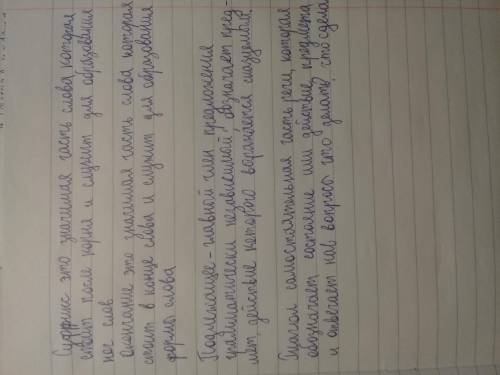 Суффикс это значимая часть слова которая
стоит после корня и служит для образования
нос слов
Окончание это значимая часть слова которая
стоит в конце слова и служит для образования
формы слова
Подлежащее - главной член предложения
грамматически независимой, обозначает пред-
мет, действие которого выражается сказуемым.
Глагол самостоятельная часть речи, которая
обозначает состояние или действие предмета
и отвечает на вопросы что делать, что сдела